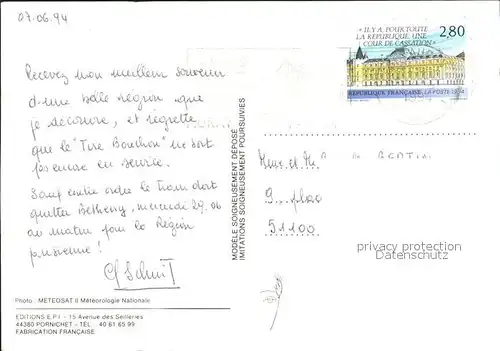 07.06.94
Recevez mon meilleur souvenir
d'une belle région que
je découvre, et regrette
que le "Tire Bouchon" ne soit
pas encore en service.
Sauf contre ordre le train doit
quitter Betheny, mercredi 29.06
au matin pour la Région
parisienne!
« IL Y A, POUR TOUTE
LA RÉPUBLIQUE, UNE
COUR DE CASSATION »
2,80
RÉPUBLIQUE FRANÇAISE LA POSTE 1994
MODÈLE SOIGNEUSEMENT DÉPOSÉ
IMITATIONS SOIGNEUSEMENT POURSUIVIES
9 plac
51100
privacy protection
oldthing.com
Photo : METEOSAT II Météorologie Nationale
EDITIONS E.P.I. - 15 Avenue des Seilleries
44380 PORNICHET - TÉL. 40 61 65 99
FABRICATION FRANÇAISE